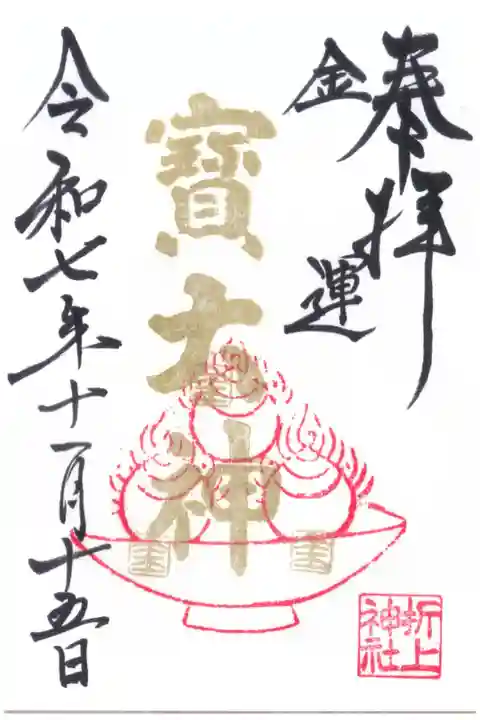 奉拝
金運
寳大神
折上
神社
令和七年十一月十五日